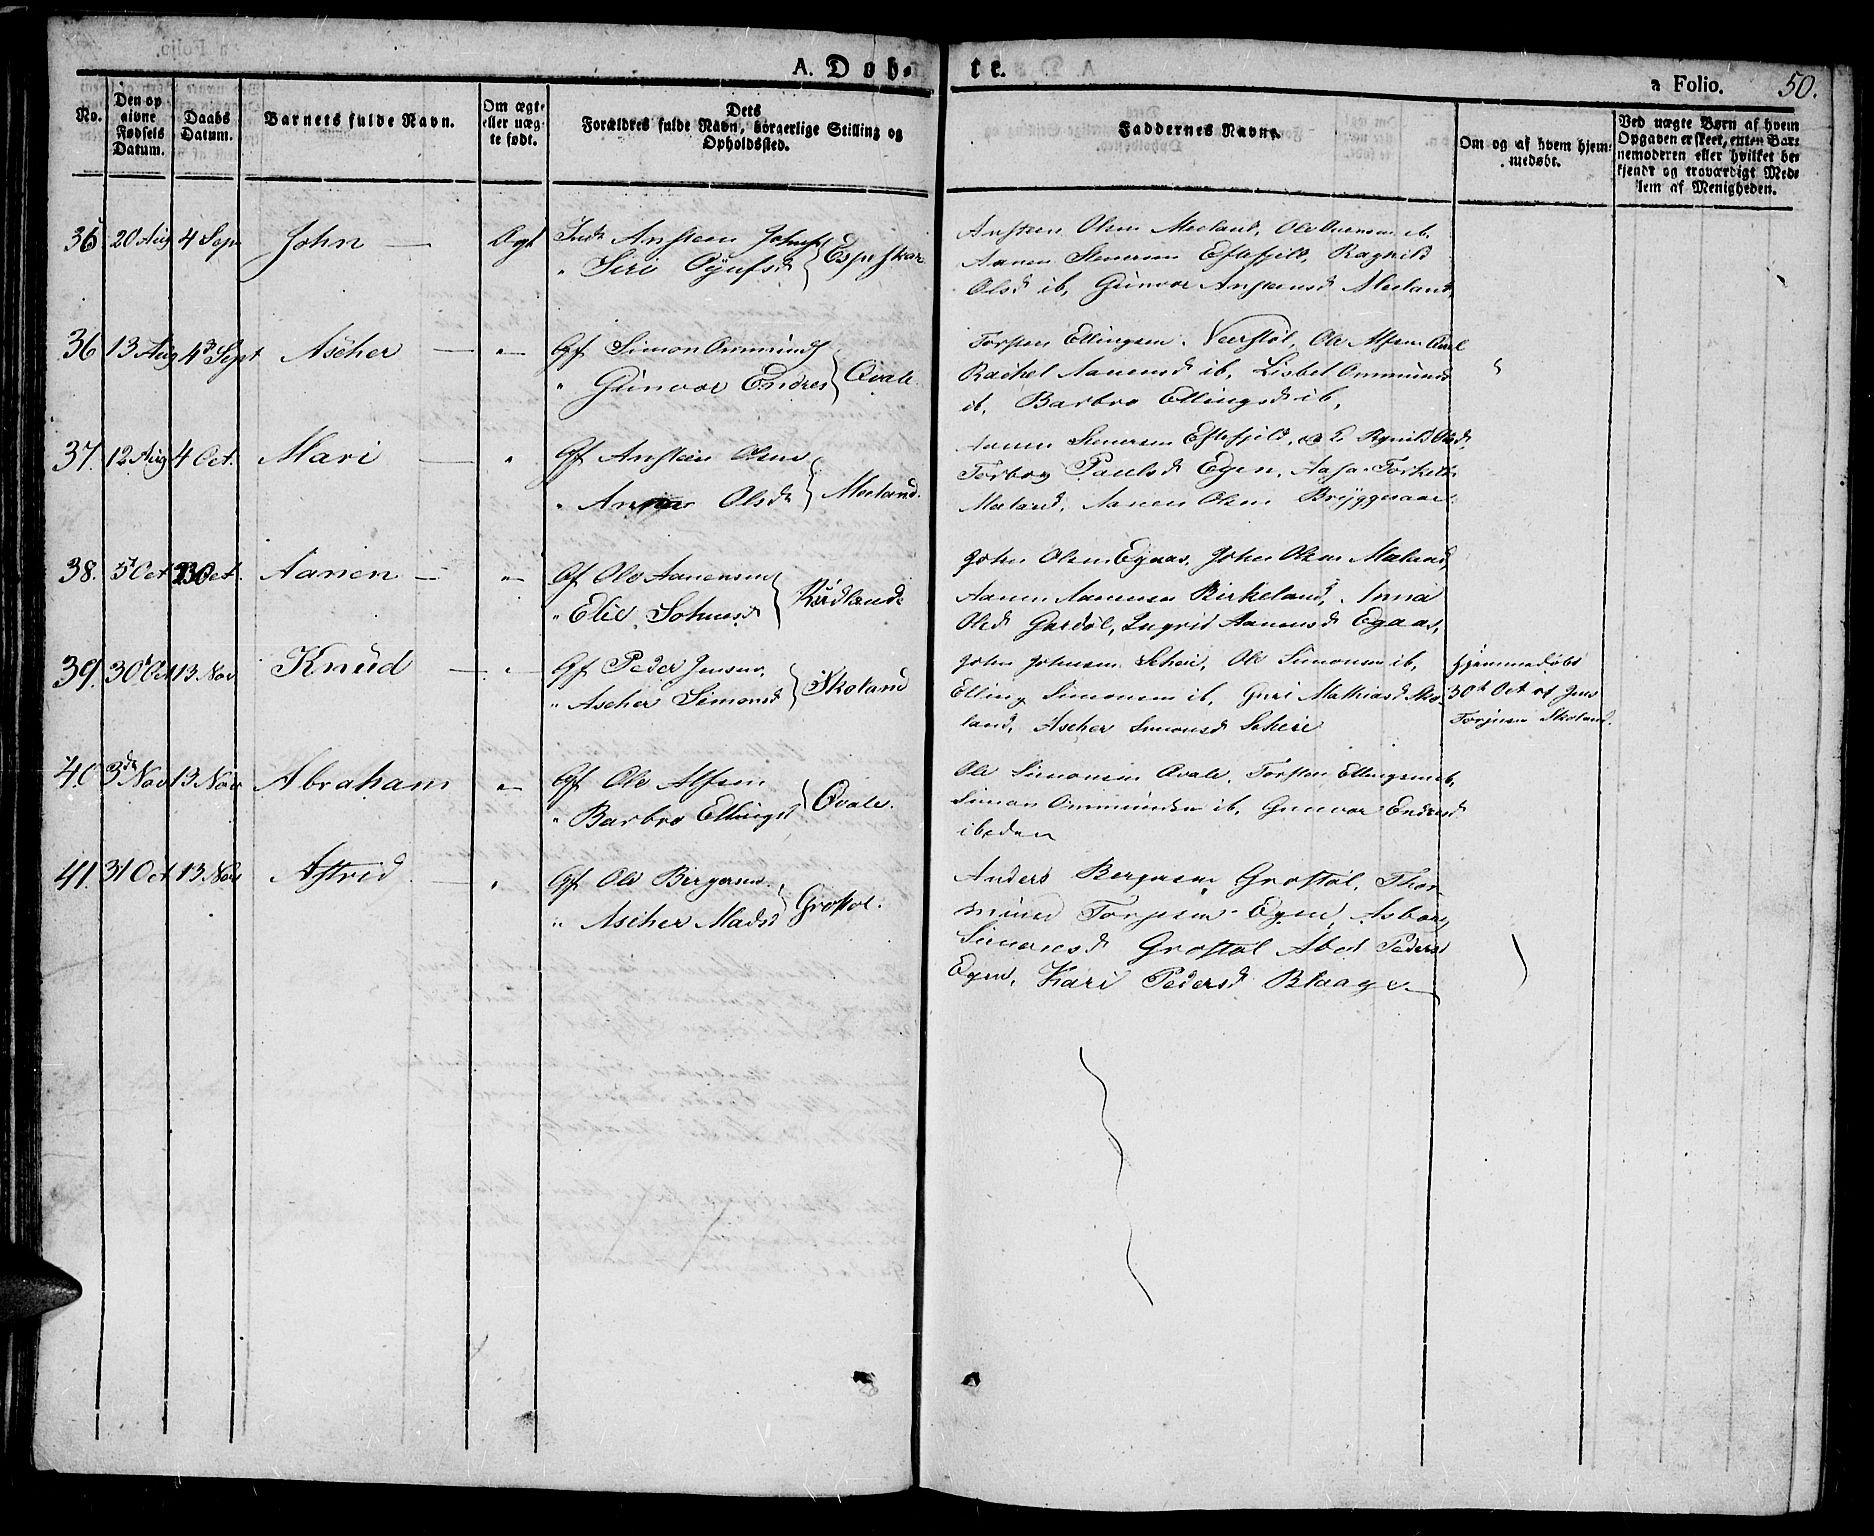 A. Døb-
te.
a Folio. 50.
No.
Den opgivne Fødsels Datum.
Daabs Datum.
Barnets fulde Navn.
Om ægte eller uægte født.
Dets Forældres fulde Navn, borgerlige Stilling og Opholdssted.
Faddernes Navne.
Om og af hvem hjemmedøbt.
Ved uægte Børn af hvem Opgaven er skeet, enten Barnemoderen eller hvilket bekjendt og troværdigt Medlem af Menigheden.
20 Aug 4 Sept John — Ægt Anstein Johns
" Siri Espeskar
Ansteen Olsen Meeland, Ole ib.
Aanen Eftefjeld, Ragnild
Olsd ib, Gunvor Anstensd Meeland
36 13 Aug 4 Sept Ascher — " — Gf Simon Ommunds
" Gunvor Endres Qvale.
Torsten Ellingsen Veerstøl, Ole Alfsen
Rachel Aanensd ib, Lisbet Ommunds
ib, Barbro Ellingsd ib,
37. 12 Aug 4 Oct. Mari — " Gf Anstein Olsen
" Olsd Meeland.
Aanen Eftefjeld, Olsd
Torbor Paulsd Egen, Aasa Torkels
Meeland, Aanen Olsen Bryggesaae
38. 5t Oct Oct. Aanen — " — Gf Ole Aanensen
" Elie Johnsd
John Olsen Egaas, John Olsen Meeland,
Aanen Aanensen Birkeland, Anna
Olsd Gardøl, Ingrid Aanensd Egaas,
39. 30t Oct 13 Nov Knud — " Gf Peder Jensen,
" Ascher Simonsd Skoland
John Johnsen Scheie, Ole Simonsen ib,
Elling Simonsen ib, Guri Mathiasd Sko-
land, Ascher Simonsd Scheie
Hjemmedøbt
30t Oct af Jens
Torjusen Skoland.
40 3de Nov 13 Nov Abraham " — Gf Ole Alfsen
" Barbro Ellingsd Qvale.
Ole Simonsen Qvale, Torsten Ellingsen ib,
Simon Ommundsen ib, Gunvor Endresd
ibeden
41. 31 Oct 13 Nov Astrid — " Gf Ole Birgersen,
" Ascher Madsd Grostøl.
Anders Bergersen Grostøl, Thor-
mund Torjusen Egen, Asbor
Simonsd Grostøl Abel Peders
Egen, Kari Pedersd Blaage